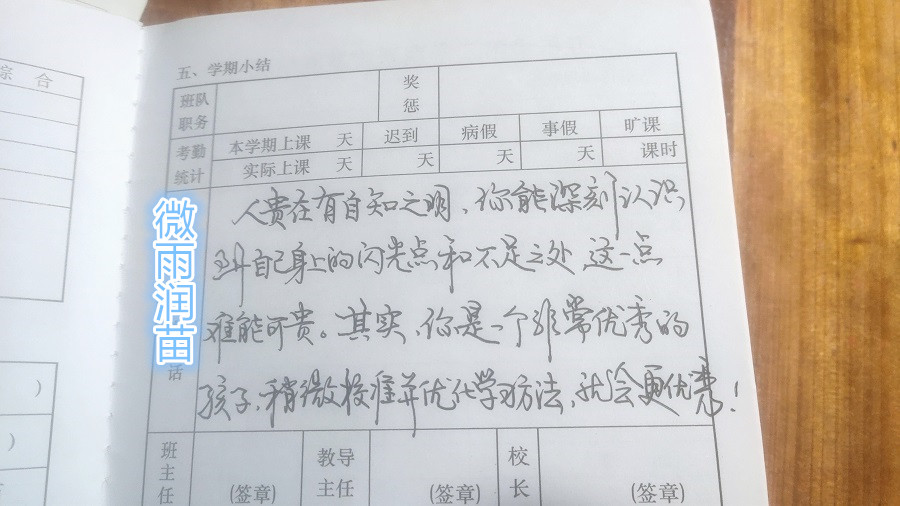 综 合
五、学期小结
班队职务
奖惩
考勤统计
本学期上课 天
迟到
病假
事假
旷课
实际上课 天
天
天
天
课时
微雨润苗
人贵在有自知之明,你能深刻认识
到自己身上的闪光点和不足之处 这一点
难能可贵。其实,你是一个非常优秀的
孩子,稍微校准并优化学习方法,就会更优秀!
话
班主任
(签章)
教导主任
(签章)
校长
(签章)
)
)